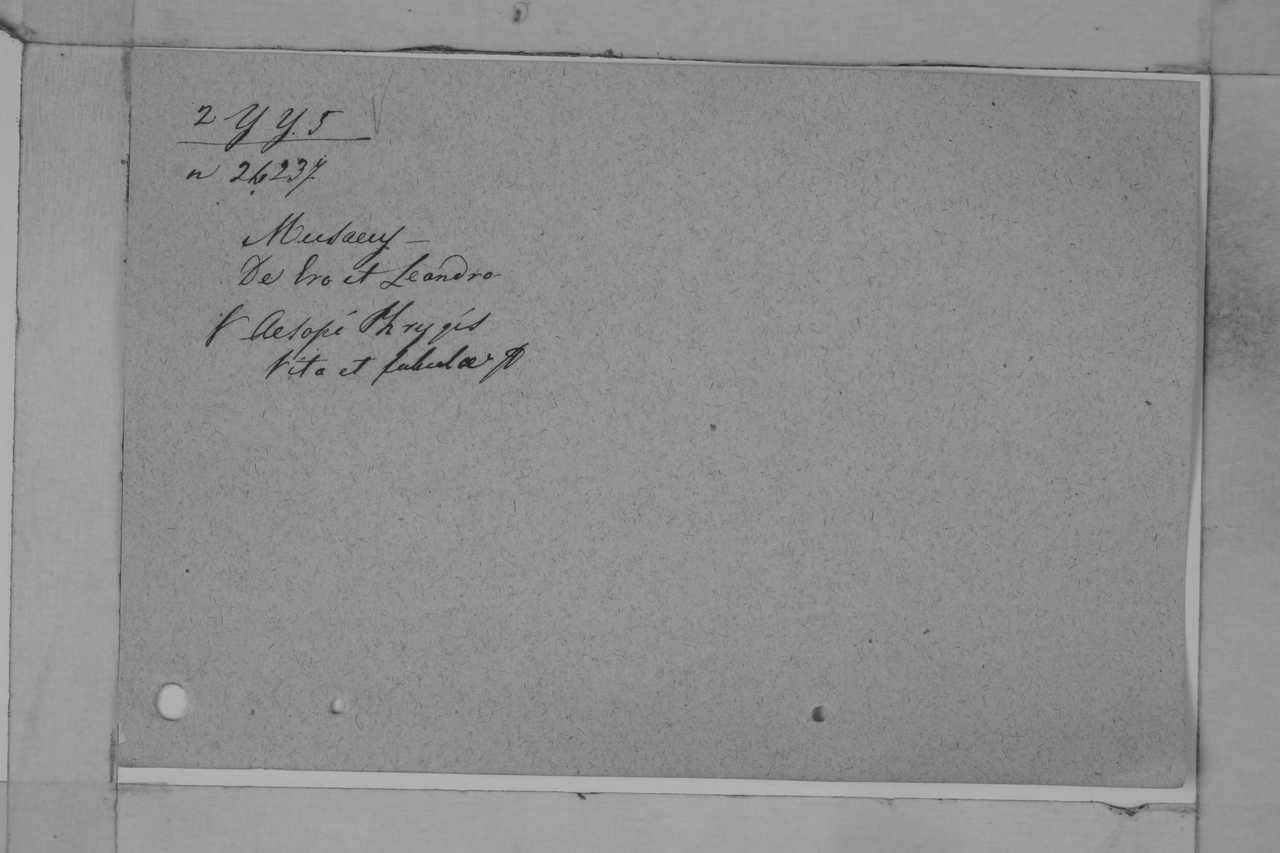 2 YY. 5
n 26237
Musaeus –
De Ero et Leandro
V Aesopi Phrygis
Vita et fabulae